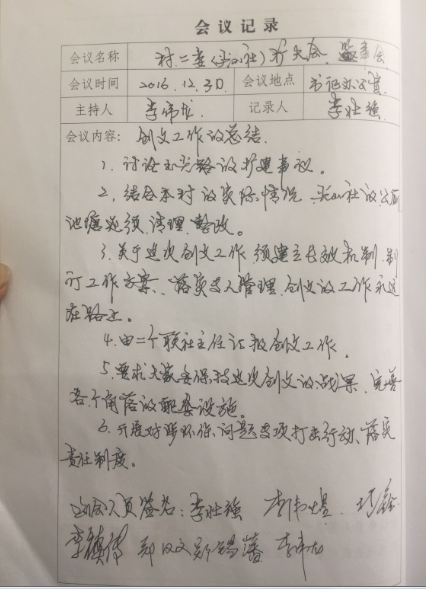 会议记录
会议名称 村二委(实公社)扩大会、监委会
会议时间 2016.12.30 会议地点 书记办公室
主持人 李伟龙 记录人 李壮强
会议内容: 创文工作的总结.
1. 讨论 路的扩建事议。
2. 结合本村的实际情况, 社的公厕
池塘必须清理、整改。
3. 关于这次创文工作须建立长效机制、制
订工作方案、落实专人管理.创文的工作永远
在路上。
4. 由二个联社主任汇报创文工作.
5. 要求大家要保持这次创文的战果,完善
各个角落的配套设施。
6. 开展对涉环保问题专项打击行动、落实
责任制度。
与会人员签名: 李壮强 李伟煜
李镇伟 郑汉文 李伟龙